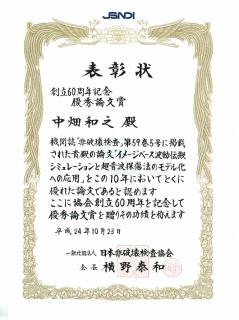 JSNDI
表彰状
創立60周年記念
優秀論文賞
中畑和之 殿
機関誌「非破壊検査」第59巻5号に掲載
された貴殿の論文"イメージベース波動伝搬
シミュレーションと超音波探傷法のモデル化
への応用"とこの10年においてとくに
優れた論文であると認めます
ここに協会創立60周年を記念して
優秀論文賞を贈りその功績を称えます
平成24年10月23日
一般社団法人 日本非破壊検査協会
会長 横野泰和